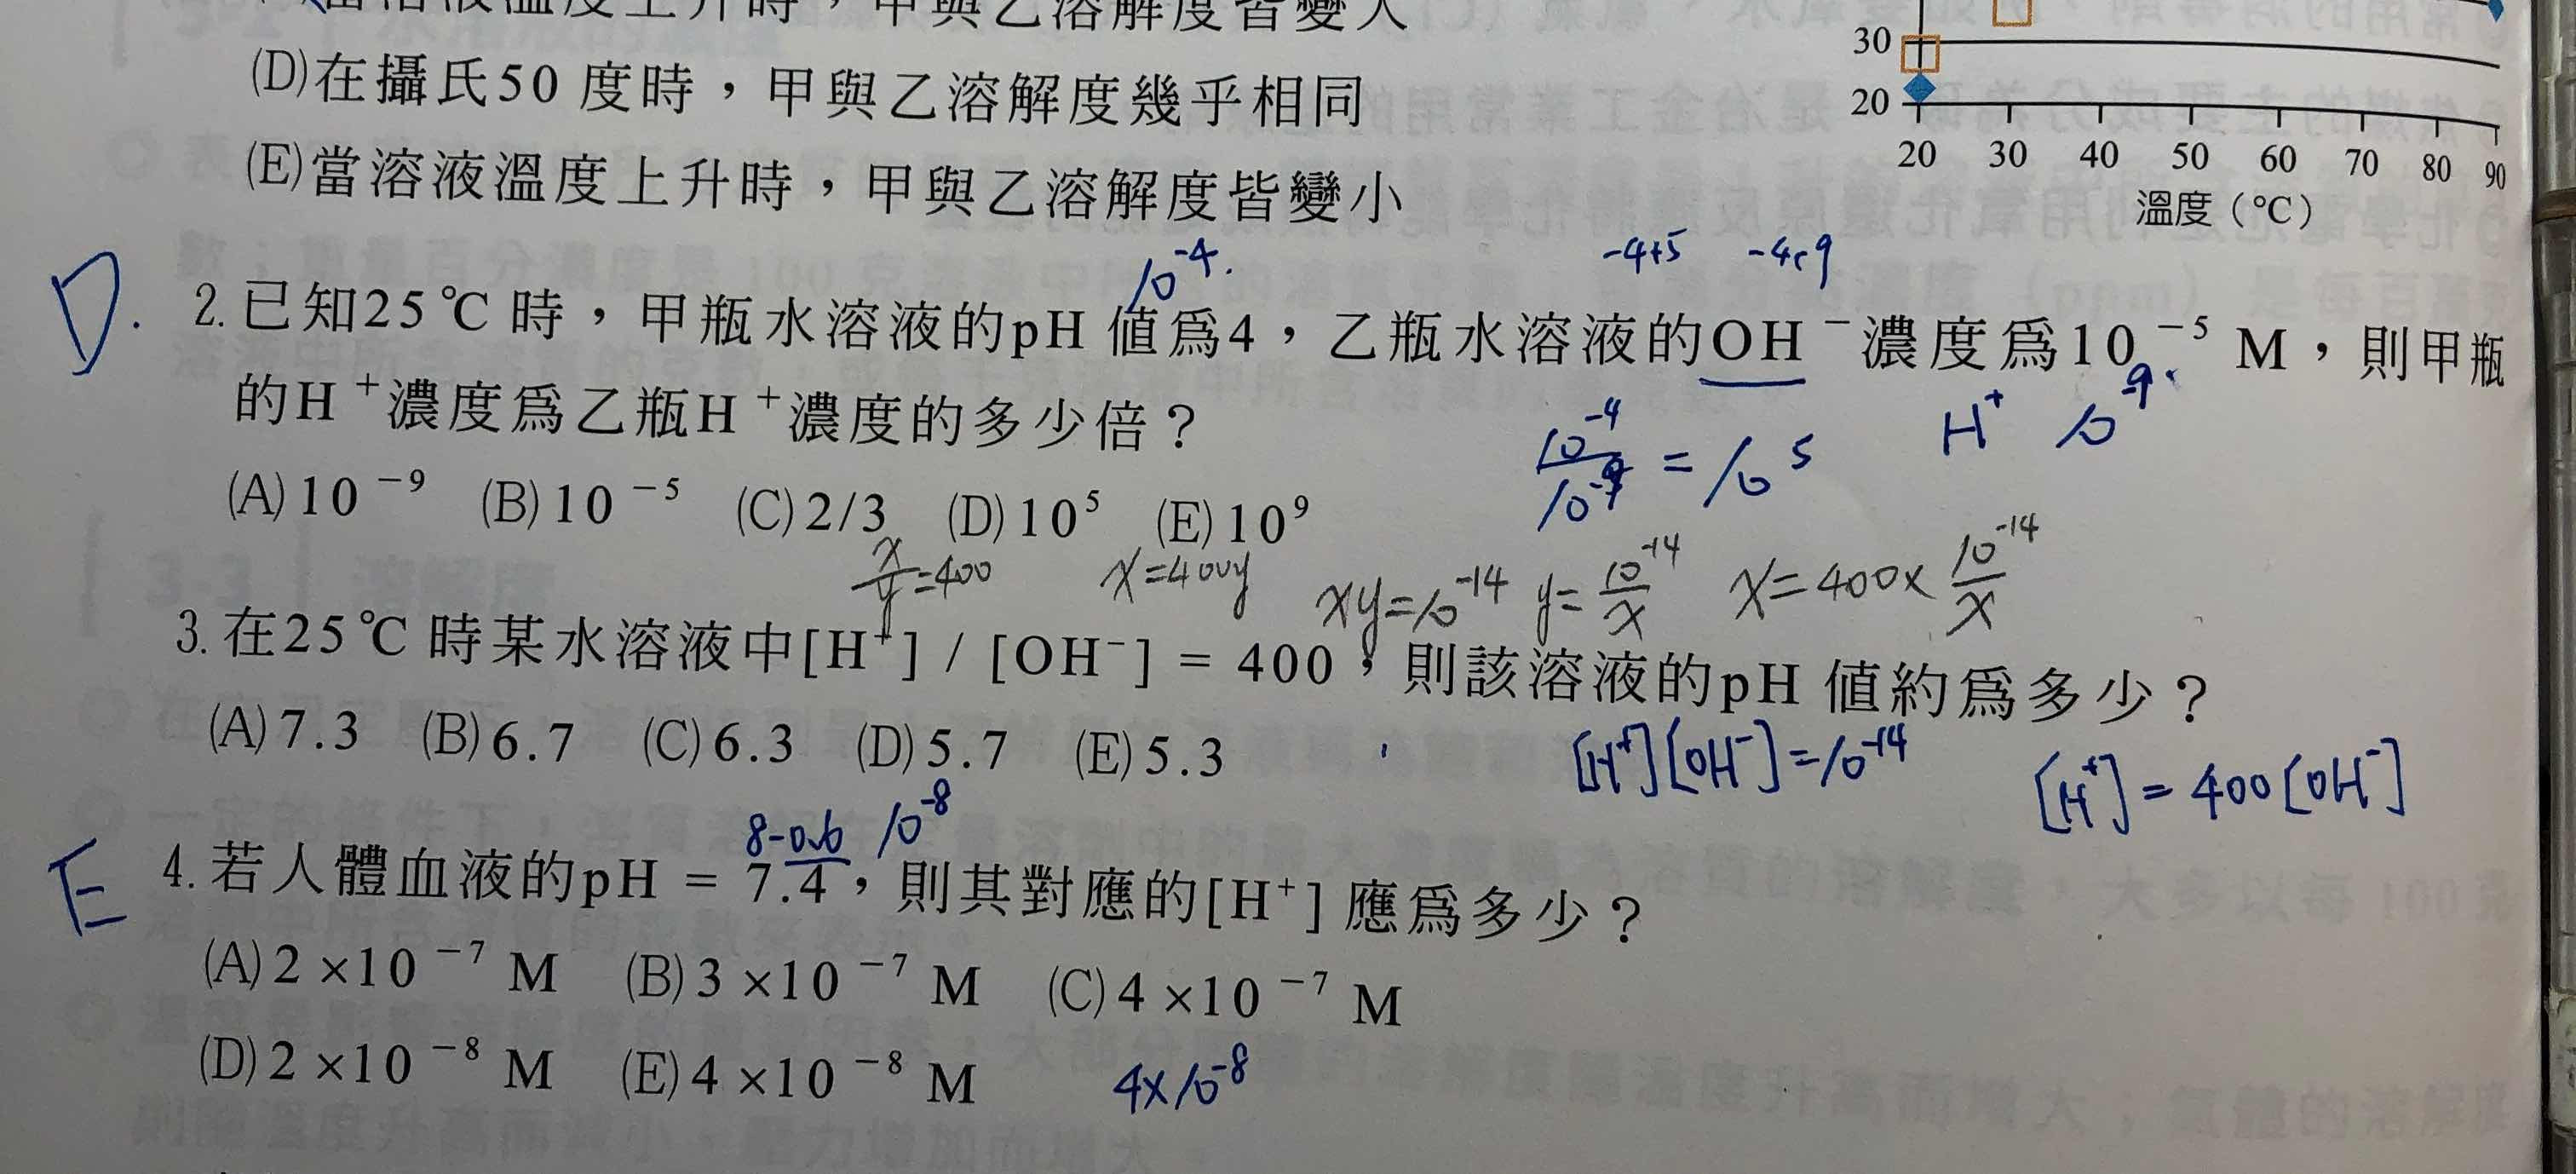 當溶液溫度上升時，甲與乙溶解度皆變大
(D)在攝氏50 度時，甲與乙溶解度幾乎相同
(E)當溶液溫度上升時，甲與乙溶解度皆變小
30
20
20 30 40 50 60 70 80 90
溫度（℃）
10⁻⁴.
-4+5
D.
2.已知25℃ 時，甲瓶水溶液的pH 值為4，乙瓶水溶液的OH⁻濃度為10⁻⁵ M，則甲瓶
的H⁺濃度為乙瓶H⁺濃度的多少倍？
H⁺ 10⁻⁹
10⁻⁴/10⁻⁹ = 10⁵
(A)10⁻⁹ (B)10⁻⁵ (C)2/3 (D)10⁵ (E)10⁹
x/y=400 x=400y xy=10⁻¹⁴ y=10⁻¹⁴/x x=400x 10⁻¹⁴/x
3.在25℃ 時某水溶液中[H⁺] / [OH⁻] = 400，則該溶液的pH 值約為多少？
(A)7.3 (B)6.7 (C)6.3 (D)5.7 (E)5.3
[H⁺][OH⁻]=10⁻¹⁴ [H⁺]=400[OH⁻]
8-0.6 10⁻⁸
E
4.若人體血液的pH = 7.4，則其對應的[H⁺] 應為多少？
(A)2 ×10⁻⁷ M (B)3 ×10⁻⁷ M (C)4 ×10⁻⁷ M
(D)2 ×10⁻⁸ M (E)4 ×10⁻⁸ M
4x10⁻⁸